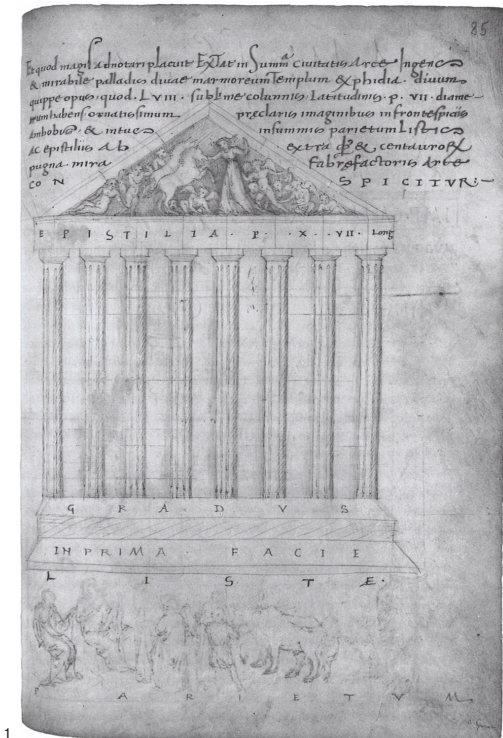 85
Et quod magis adnotari placuit Extat in Summa ciuitatis Arce Ingens
& mirabile palladis diuae marmoreum Templum ex phidia · diuum
quippe opus · quod · LVIII · sublime columnis · Latitudinis · p · VII · diame-
trum habens · ornatissimum praeclaris imaginibus in frontespiciis
ambobus & intus insummis parietum Listis
ac epistiliis ab extra & centauro
pugna · mira fabrefactoris Arte
CON SPICITVR:—
EPISTILIA · P · X · VII · Long
GRADVS
INPRIMA FACIE
LISTE ·
PARIETVM
1